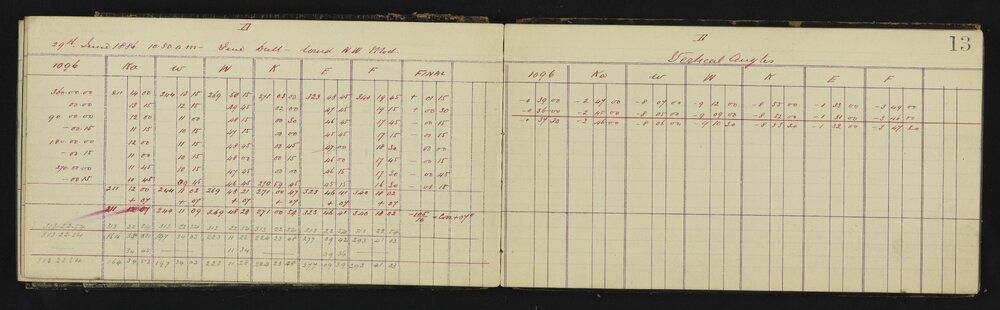 II
29th June 1886 10.50 a.m - Fine Dull - Wind N.W. Mod.
1096 Ka w W K E F FINAL
360.00.00 211 14 00 244 13 15 269 50 15 271 03 00 323 48 45 340 19 45 + 01 15
00.00 13 15 12 15 49 45 02 00 47 45 19 15 + 00 30
90.00.00 12 00 11 00 48 15 00 30 46 45 17 45 - 00 15
-00.15 11 15 10 15 47 15 00 00 45 45 17 15 - 00 15
180.00.00 12 00 11 15 48 45 00 45 47 00 18 30 00 00
-00.15 11 00 10 15 48 00 00 15 46 00 17 45 - 00 15
270.00.00 11 45 10 15 47 45 00 15 46 15 17 30 - 00 45
-00.15 10 45 09 45 46 45 270 59 45 45 15 16 30 - 00 15
211 12 00 244 11 02 269 48 21 271 00 47 323 46 41 340 18 02
+ 07 + 07 + 07 + 07 + 07
244 11 09 269 48 28 271 00 54 323 46 41 340 18 02
313.22.54 313 22 54 313 22 54 313 22 54 313 22 54 313 22 54
313.22.54 197 34 03 223 11 22 224 23 48 277 09 42 293 41 23
34 45 11 34 09 36
313.22.54 164 34 53 197 34 03 223 11 28 224 23 48 277 09 39 293 41 23
II
13
Vertical Angles
1096 Ka w W K E F
-0 39 00 -2 47 00 -8 07 00 -9 12 00 -8 35 00 -1 33 00 -3 49 00
-0 36 00 -2 45 00 -8 05 00 -9 09 00 -8 32 00 -1 31 00 -3 46 00
-0 37 30 -2 46 00 -8 06 00 -9 10 30 -8 33 30 -1 32 00 -3 47 30